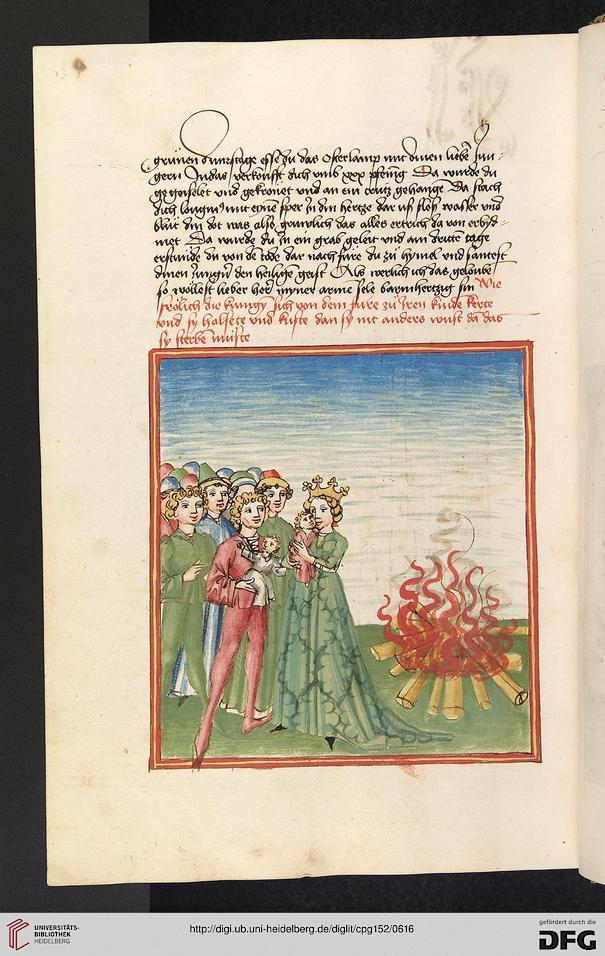 grünen dunrstage esse du das Osterlamp mit dinen liebē Jun-
gern Judas verkoufft dich umb xxx pfenig Da wurde du
gegeiselet und gekrönet und an ein crutz gehange Da stach
dich longinus mit eyme sper in din hertze dar usz flosz wasser und
blut din dot was also das alles ertrich da von erbyd-
met Da wurde du in ein grab geleit und am dritte tage
erstunde du von de tode dar nach fure du zu hymel und santest
dinen Jungern den heilige geist Als werlich ich das geloube
so wollest lieber herr myner arme sele barmhertzig sin Wie
frölich die kunigin sich von dem füre zu Iren kinde kerte
und sy halsete und kuste dan sy nit anders wust dā das
sy sterbē müste
UNIVERSITÄTS-
BIBLIOTHEK
HEIDELBERG
http://digi.ub.uni-heidelberg.de/diglit/cpg152/0616
gefördert durch die
DFG